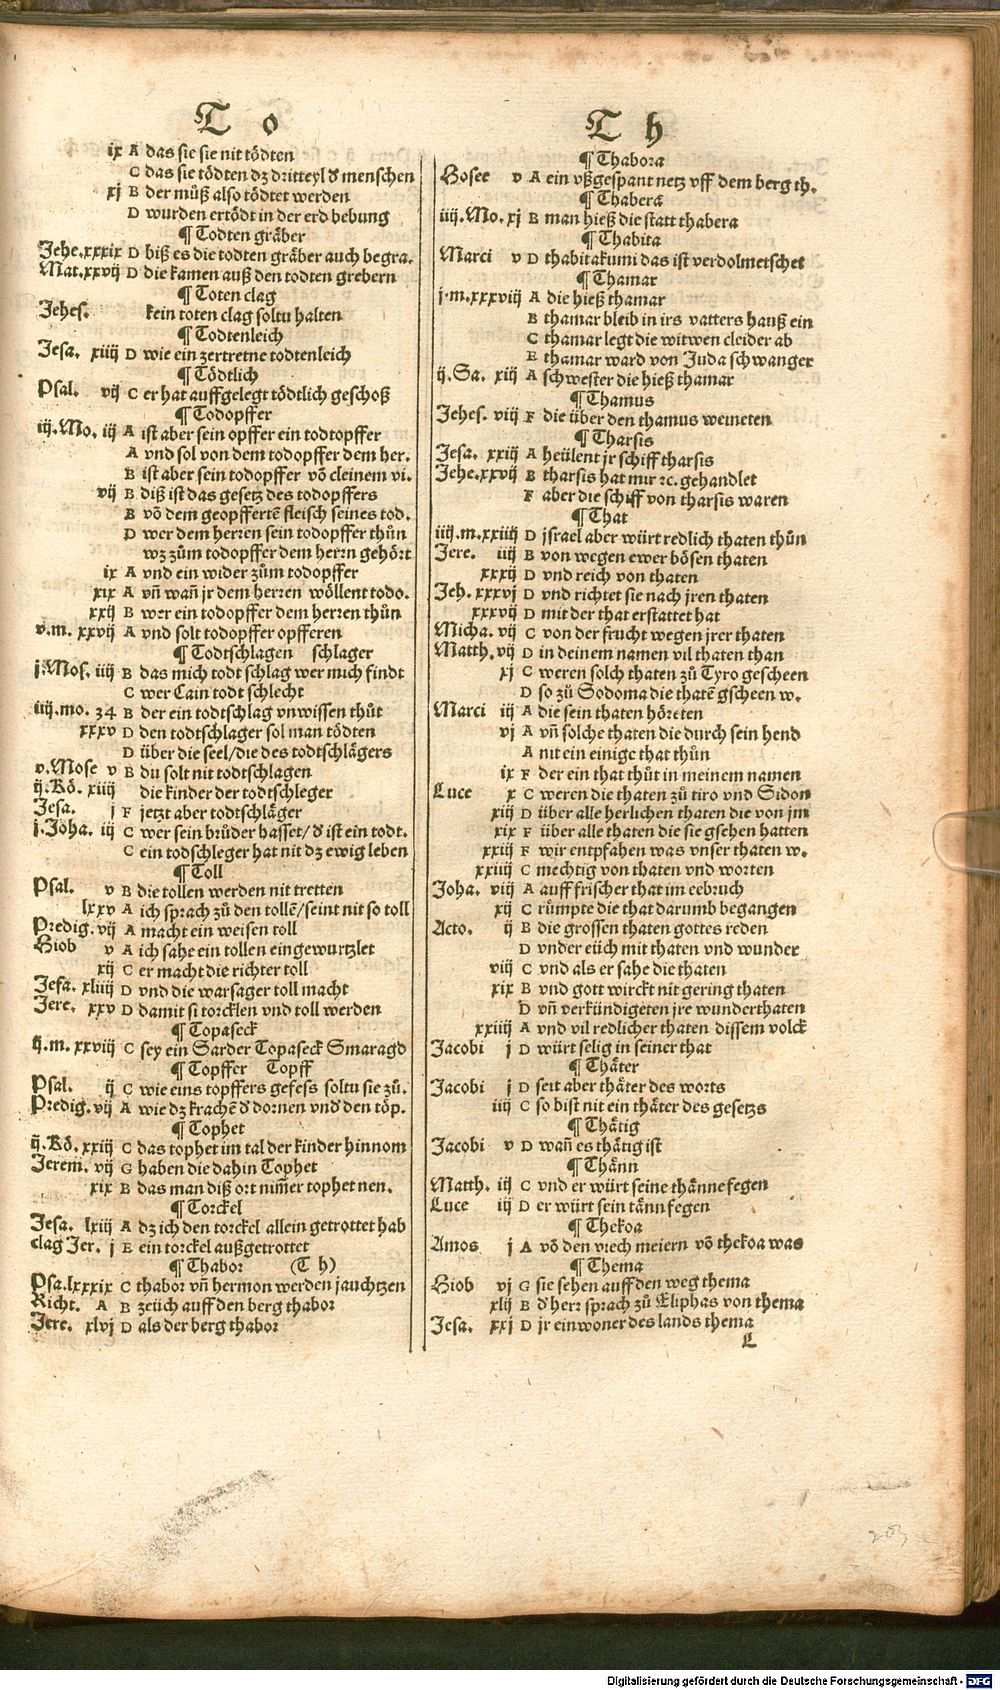 T o
ix A das sie sie nit tödten
C das sie tödten dz dritteyl d̓ menschen
xj B der můß also tödtet werden
D wurden ertödt in der erd bebung
¶ Todten gräber
Jehe. xxxix D biß es die todten gräber auch begra.
Mat. xxvij D die kamen auß den todten grebern
¶ Toten clag
Jehes. kein toten clag soltu halten
¶ Todtenleich
Jesa. xiiij D wie ein zertretne todtenleich
¶ Tödtlich
Psal. vij C er hat auffgelegt tödtlich geschoß
¶ Todopffer
iij. Mo. iij A ist aber sein opffer ein todtopffer
A vnd sol von dem todopffer dem her.
B ist aber sein todopffer võ cleinem vi.
vij B diß ist das gesetz des todopffers
B võ dem geopffertẽ fleisch seines tod.
D wer dem herren sein todopffer thůn
wz zům todopffer dem herrn gehört
ix A vnd ein wider zům todopffer
xix A vñ wañ jr dem herren wöllent todo.
xxij B wer ein todopffer dem herren thůn
v. m. xxvij A vnd solt todopffer opfferen
¶ Todtschlagen schlager
j. Mos. iiij B das mich todt schlag wer mich findt
C wer Cain todt schlecht
iiij. mo. 34 B der ein todtschlag vnwissen thůt
xxxv D den todtschlager sol man tödten
D über die seel/die des todtschlägers
v. Mose v B du solt nit todtschlagen
ij. Kö. xiiij die kinder der todtschleger
Jesa. j F jetzt aber todtschläger
j. Joha. iij C wer sein brůder hasset/d̓ ist ein todt.
C ein todschleger hat nit dz ewig leben
¶ Toll
Psal. v B die tollen werden nit tretten
lxxv A ich sprach zů den tollẽ/seint nit so toll
Predig. vij A macht ein weisen toll
Hiob v A ich sahe ein tollen eingewurtzlet
xij C er macht die richter toll
Jesa. xliiij D vnd die warsager toll macht
Jere. xxv D damit si torcklen vnd toll werden
¶ Topaseck
ij. m. xxviij C sey ein Sarder Topaseck Smaragd
¶ Topffer Topff
Psal. ij C wie eins topffers gefess soltu sie zů.
Predig. vij A wie dz krachẽ d̓ dornen vnd̓ den töp.
¶ Tophet
ij. Kö. xxiij C das tophet im tal der kinder hinnom
Jerem. vij G haben die dahin Tophet
xix B das man diß ort nim̃er tophet nen.
¶ Torckel
Jesa. lxiij A dz ich den torckel allein getrottet hab
clag Jer. j E ein torckel außgetrottet
¶ Thabor (T h)
Psa. lxxxix C thabor vñ hermon werden jauchtzen
Richt. A B zeüch auff den berg thabor
Jere. xlvj D als der berg thabor
T h
¶ Thabora
Hosee v A ein vßgespant netz vff dem berg th.
¶ Thabera
iiij. Mo. xj B man hieß die statt thabera
¶ Thabita
Marci v D thabitakumi das ist verdolmetschet
¶ Thamar
j. m. xxxviij A die hieß thamar
B thamar bleib in irs vatters hauß ein
C thamar legt die witwen cleider ab
E thamar ward von Juda schwanger
ij. Sa. xiij A schwester die hieß thamar
¶ Thamus
Jehes. viij F die über den thamus weineten
¶ Tharsis
Jesa. xxiij A heülent jr schiff tharsis
Jehe. xxvij B tharsis hat mir ꝛc. gehandlet
F aber die schiff von tharsis waren
¶ That
iiij. m. xxiiij D jsrael aber würt redlich thaten thůn
Jere. iiij B von wegen ewer bösen thaten
xxxij D vnd reich von thaten
Jeh. xxxvj D vnd richtet sie nach jren thaten
xxxvij D mit der that erstattet hat
Micha. vij C von der frucht wegen jrer thaten
Matth. vij D in deinem namen vil thaten than
xj C weren solch thaten zů Tyro gescheen
D so zů Sodoma die thatẽ gscheen w.
Marci iij A die sein thaten höreten
vj A vñ solche thaten die durch sein hend
A nit ein einige that thůn
ix F der ein that thůt in meinem namen
Luce x C weren die thaten zů tiro vnd Sidon
xiij D über alle herlichen thaten die von jm
xix F über alle thaten die sie gsehen hatten
xxiij F wir entpfahen was vnser thaten w.
xxiiij C mechtig von thaten vnd worten
Joha. viij A auff frischer that im eebruch
xij C rümpte die that darumb begangen
Acto. ij B die grossen thaten gottes reden
D vnder eüch mit thaten vnd wunder
viij C vnd als er sahe die thaten
xix B vnd gott wirckt nit gering thaten
D vñ verkündigeten jre wunderthaten
xxiiij A vnd vil redlicher thaten dissem volck
Jacobi j D würt selig in seiner that
¶ Thäter
Jacobi j D seit aber thäter des worts
iiij C so bist nit ein thäter des gesetzs
¶ Thätig
Jacobi v D wañ es thätig ist
¶ Thänn
Matth. iij C vnd er würt seine thänne fegen
Luce iij D er würt sein tänn fegen
¶ Thekoa
Amos j A võ den viech meiern võ thekoa was
¶ Thema
Hiob vj G sie sehen auff den weg thema
xlij B d̓ herr sprach zů Eliphas von thema
Jesa. xxj D jr einwoner des lands thema
L
203
Digitalisierung gefördert durch die Deutsche Forschungsgemeinschaft - DFG